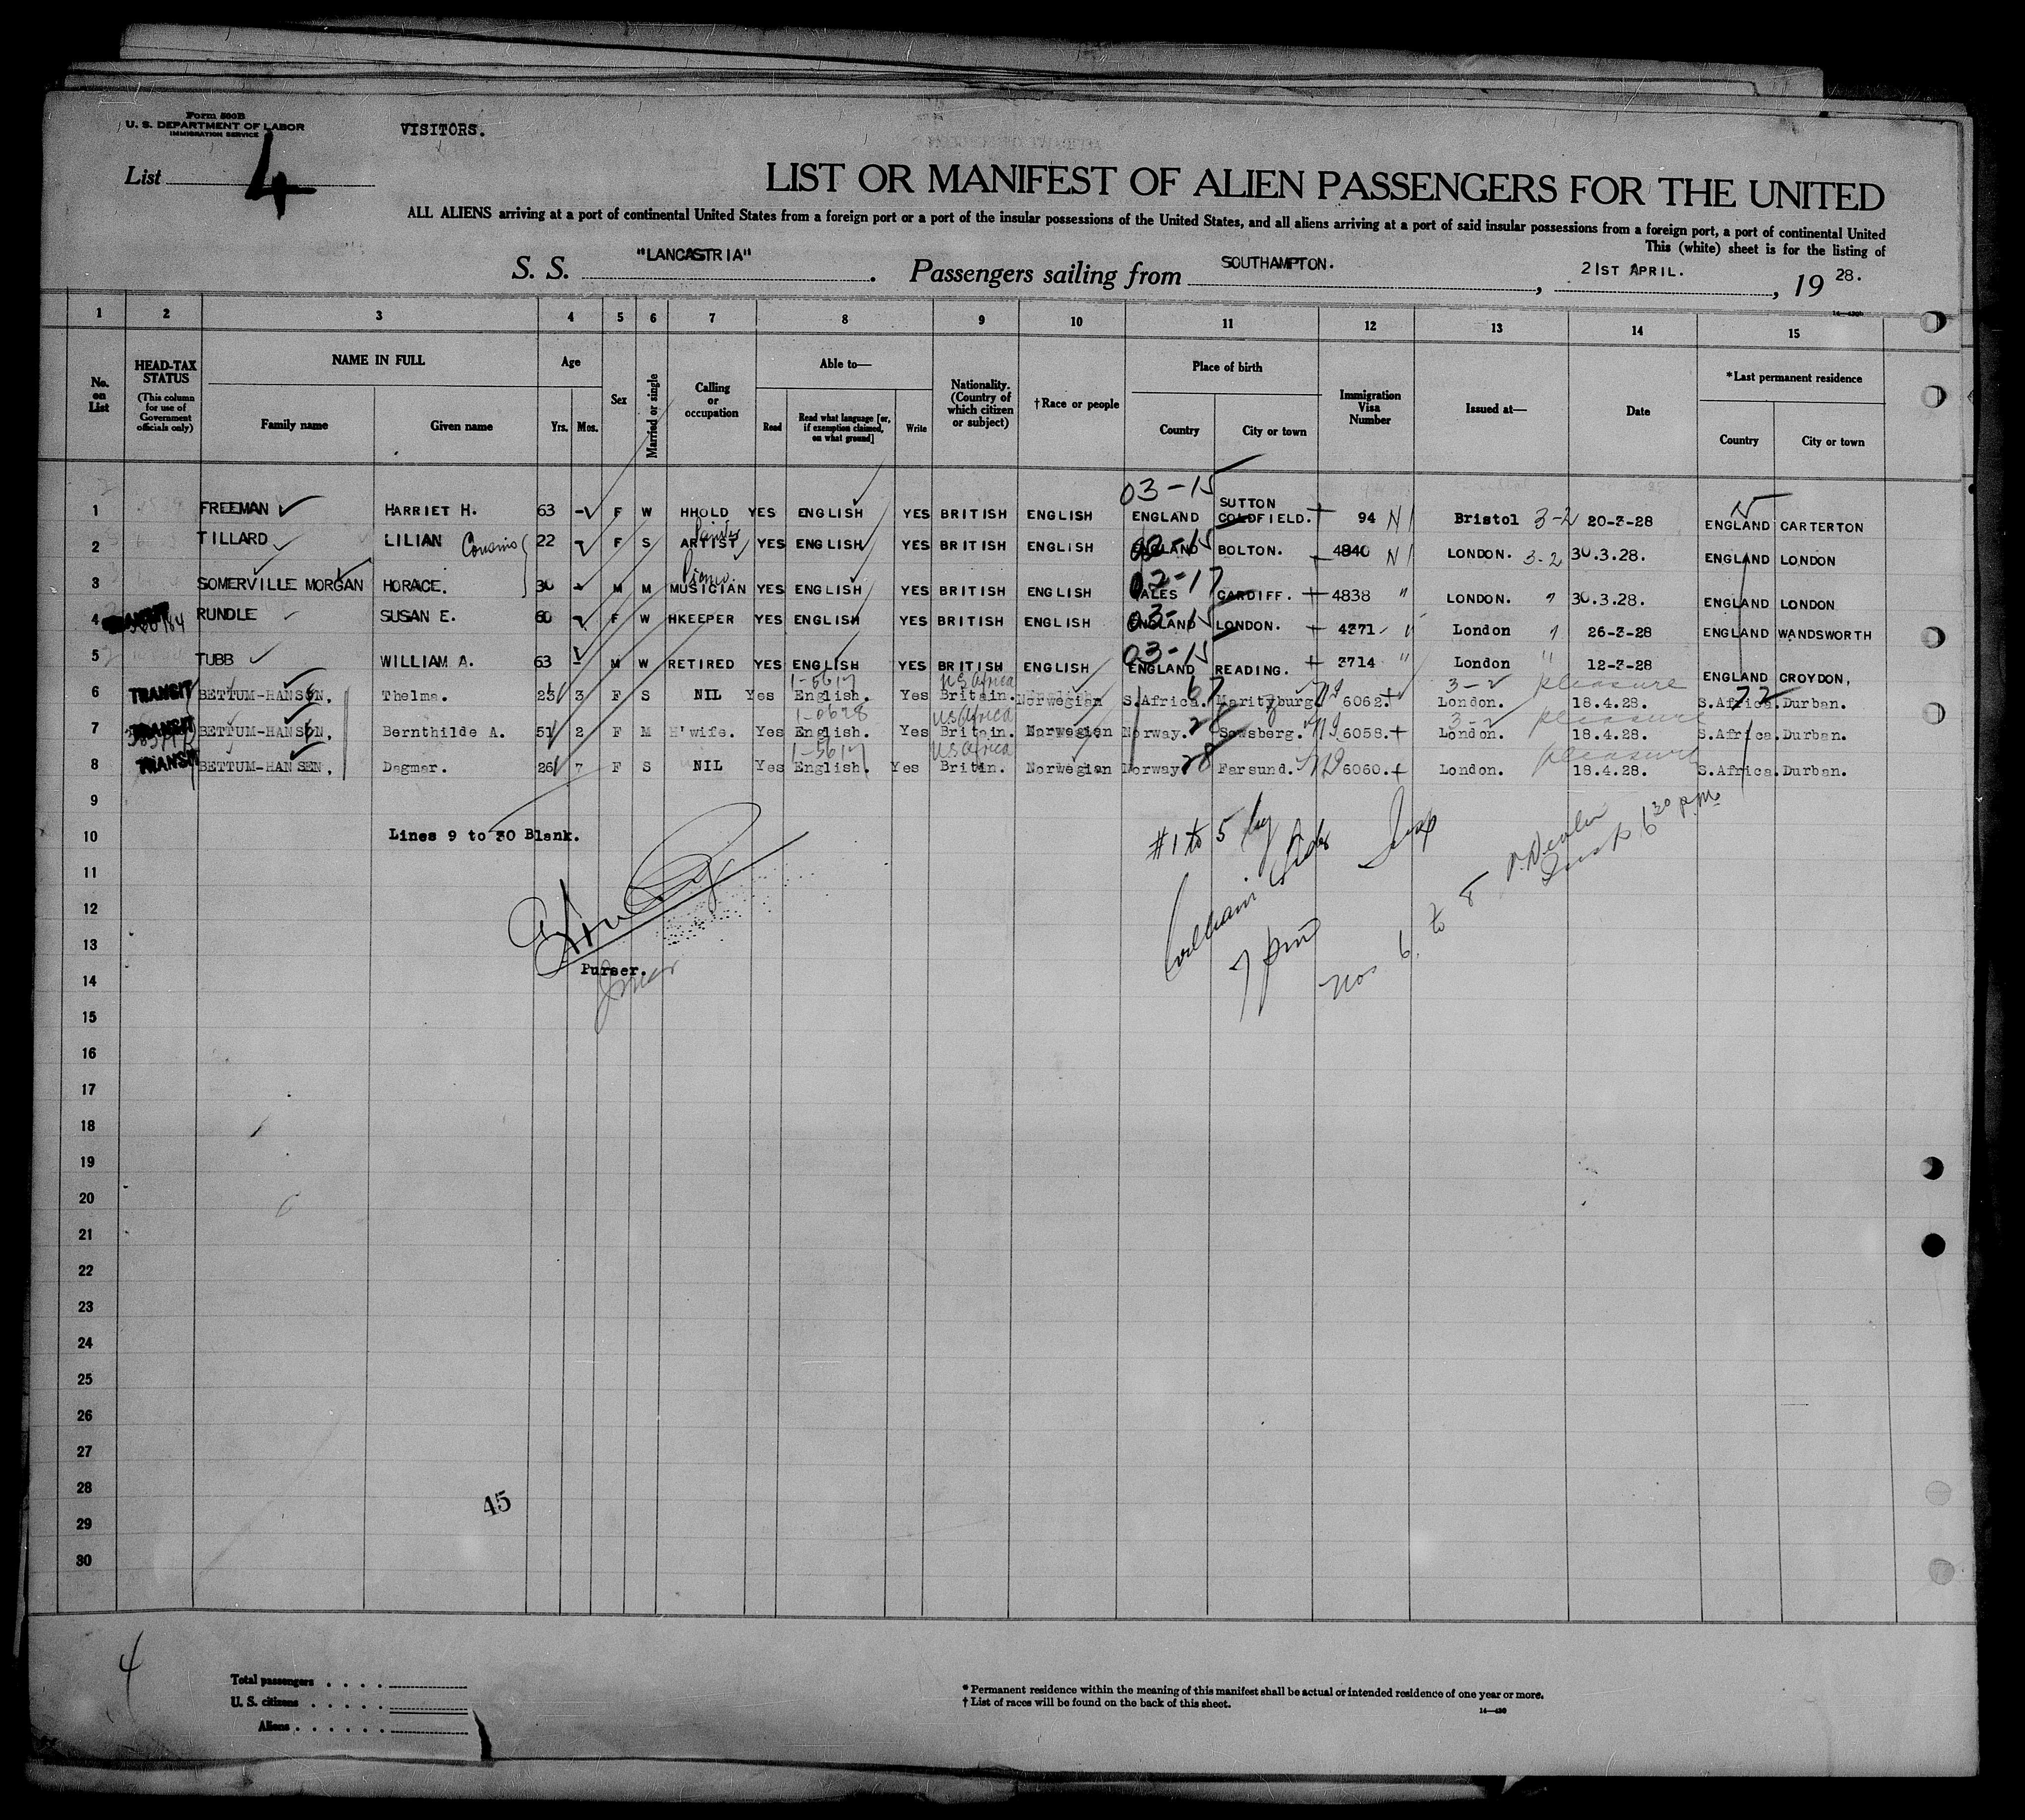 Form 500B
U. S. DEPARTMENT OF LABOR
IMMIGRATION SERVICE
VISITORS.
List 4
LIST OR MANIFEST OF ALIEN PASSENGERS FOR THE UNITED
ALL ALIENS arriving at a port of continental United States from a foreign port or a port of the insular possessions of the United States, and all aliens arriving at a port of said insular possessions from a foreign port, a port of continental United
This (white) sheet is for the listing of
S. S. "LANCASTRIA". Passengers sailing from SOUTHAMPTON., 21ST APRIL., 19 28.
1 2 3 4 5 6 7 8 9 10 11 12 13 14 15
No. on List
HEAD-TAX STATUS (This column for use of Government officials only)
NAME IN FULL
Family name
Given name
Age
Yrs. Mos.
Sex
Married or single
Calling or occupation
Able to—
Read
Read what language [or, if exemption claimed, on what ground]
Write
Nationality. (Country of which citizen or subject)
†Race or people
Place of birth
Country
City or town
Immigration Visa Number
Issued at—
Date
*Last permanent residence
Country
City or town
03-15 15
1 FREEMAN HARRIET H. 63 - F W HHOLD YES ENGLISH YES BRITISH ENGLISH ENGLAND SUTTON COLDFIELD. 94 Bristol 3-2 20-3-28 ENGLAND CARTERTON
2 TILLARD LILIAN Cousins 22 F S ARTIST YES ENGLISH YES BRITISH ENGLISH ENGLAND BOLTON. 4840 LONDON. 3-2 30.3.28. ENGLAND LONDON
Piano. 02-17
3 SOMERVILLE MORGAN HORACE. 30 M M MUSICIAN YES ENGLISH YES BRITISH ENGLISH WALES CARDIFF. 4838 " LONDON. " 30.3.28. ENGLAND LONDON
03-15
4 RUNDLE SUSAN E. 60 F W HKEEPER YES ENGLISH YES BRITISH ENGLISH ENGLAND LONDON. 4371 " London " 26-3-28 ENGLAND WANDSWORTH
03-15
5 TUBB WILLIAM A. 63 - M W RETIRED YES ENGLISH YES BRITISH ENGLISH ENGLAND READING. 3714 " London " 12-3-28 ENGLAND CROYDON,
67 3-2 pleasure 72
6 TRANSIT BETTUM-HANSEN, Thelma. 23 3 F S NIL Yes English. Yes Britain. Norwegian S.Africa. Maritzburg. 6062. London. 18.4.28. S.Africa. Durban.
1-0628 28 3-2 pleasure
7 TRANSIT BETTUM-HANSEN, Bernthilde A. 51 2 F M H'wife. Yes English. Yes Britain. Norwegian Norway. Sowsberg. 6058. London. 18.4.28. S.Africa. Durban.
28 pleasure
8 TRANSIT BETTUM-HANSEN, Dagmar. 26 7 F S NIL Yes English. Yes Britin. Norwegian Norway Farsund. 6060. London. 18.4.28. S.Africa. Durban.
9
10 Lines 9 to 30 Blank.
#1 to 5 by
William Insp
7 pm
Nos 6 to 8 Insp 6 30 pm
11
12
13
Purser.
14
15
16
17
18
19
20
21
22
23
24
25
26
27
28
45
29
30
4
Total passengers . . . .
U. S. citizens . . . . .
Aliens . . . . . .
* Permanent residence within the meaning of this manifest shall be actual or intended residence of one year or more.
† List of races will be found on the back of this sheet.
14—430